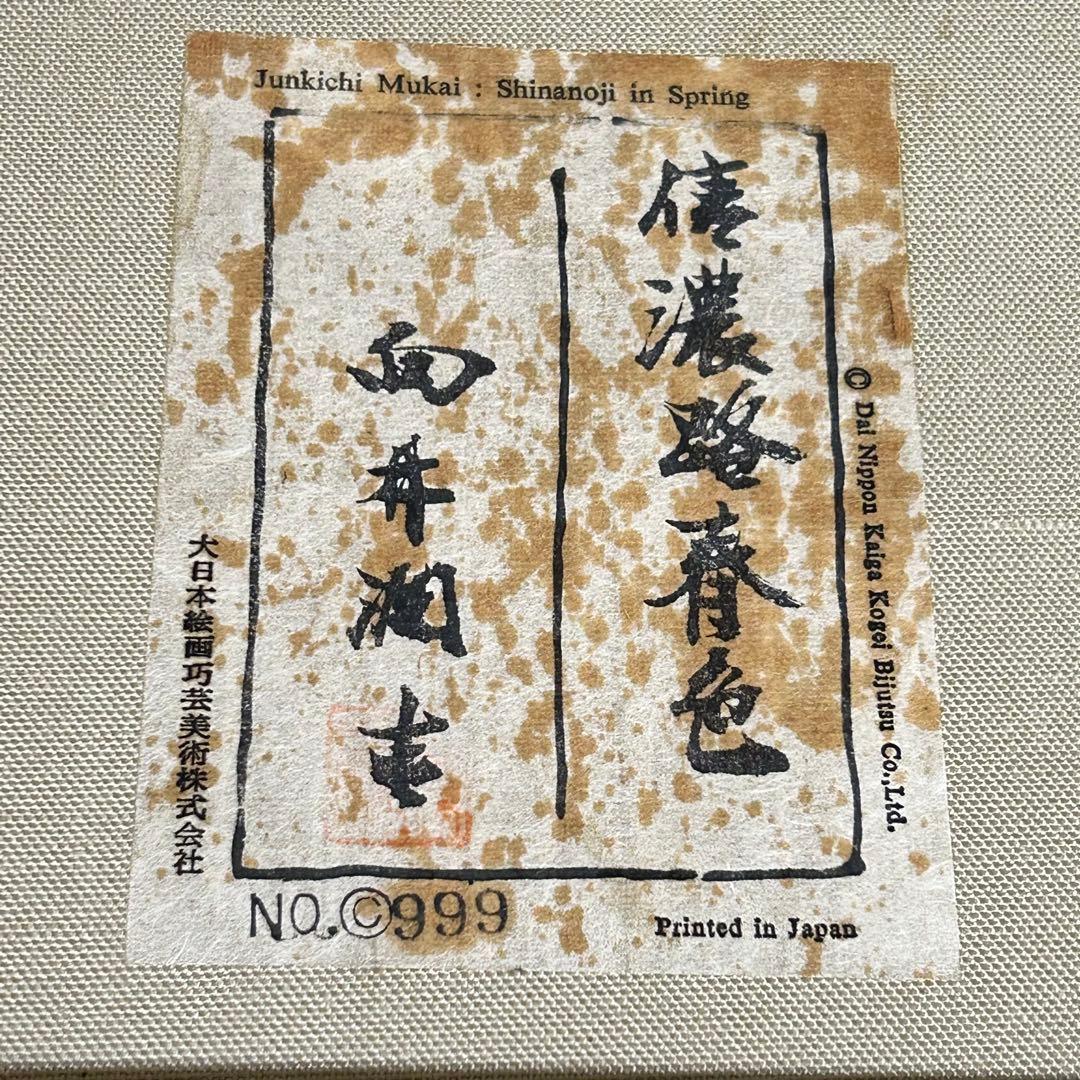 Junkichi Mukai : Shinanoji in Spring
信濃路春色
向井潤吉
© Dai Nippon Kaiga Kogei Bijutsu Co.,Ltd.
大日本絵画巧芸美術株式会社
NO.©999
Printed in Japan